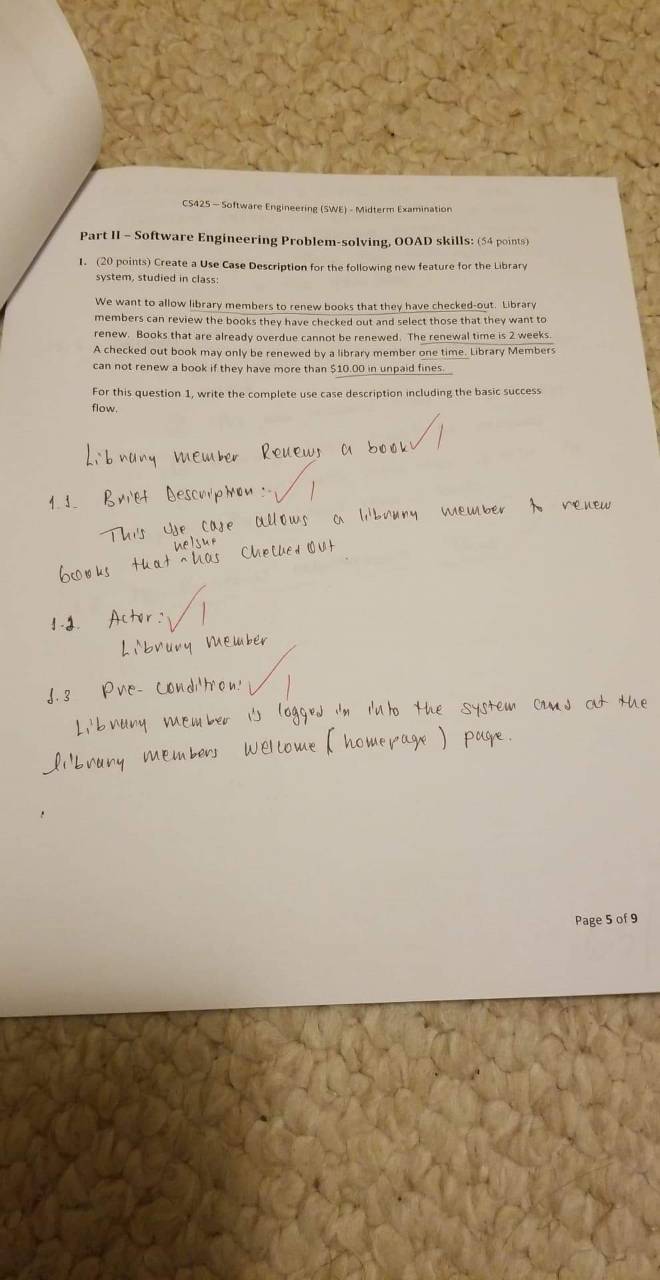 CS425 – Software Engineering (SWE) - Midterm Examination
Part II – Software Engineering Problem-solving, OOAD skills: (54 points)
1. (20 points) Create a Use Case Description for the following new feature for the Library
system, studied in class:
We want to allow library members to renew books that they have checked-out. Library
members can review the books they have checked out and select those that they want to
renew. Books that are already overdue cannot be renewed. The renewal time is 2 weeks.
A checked out book may only be renewed by a library member one time. Library Members
can not renew a book if they have more than $10.00 in unpaid fines.
For this question 1, write the complete use case description including the basic success
flow.
Library member Renews a book ✓ 1
1.1. Brief Description :- ✓ 1
This use case allows a library member to renew
he/she
books that ^ has checked out.
1.2. Actor: ✓ 1
Library member
1.3 Pre-condition: ✓ 1
Library member is logged in into the system and at the
library members welcome (homepage) page.
Page 5 of 9